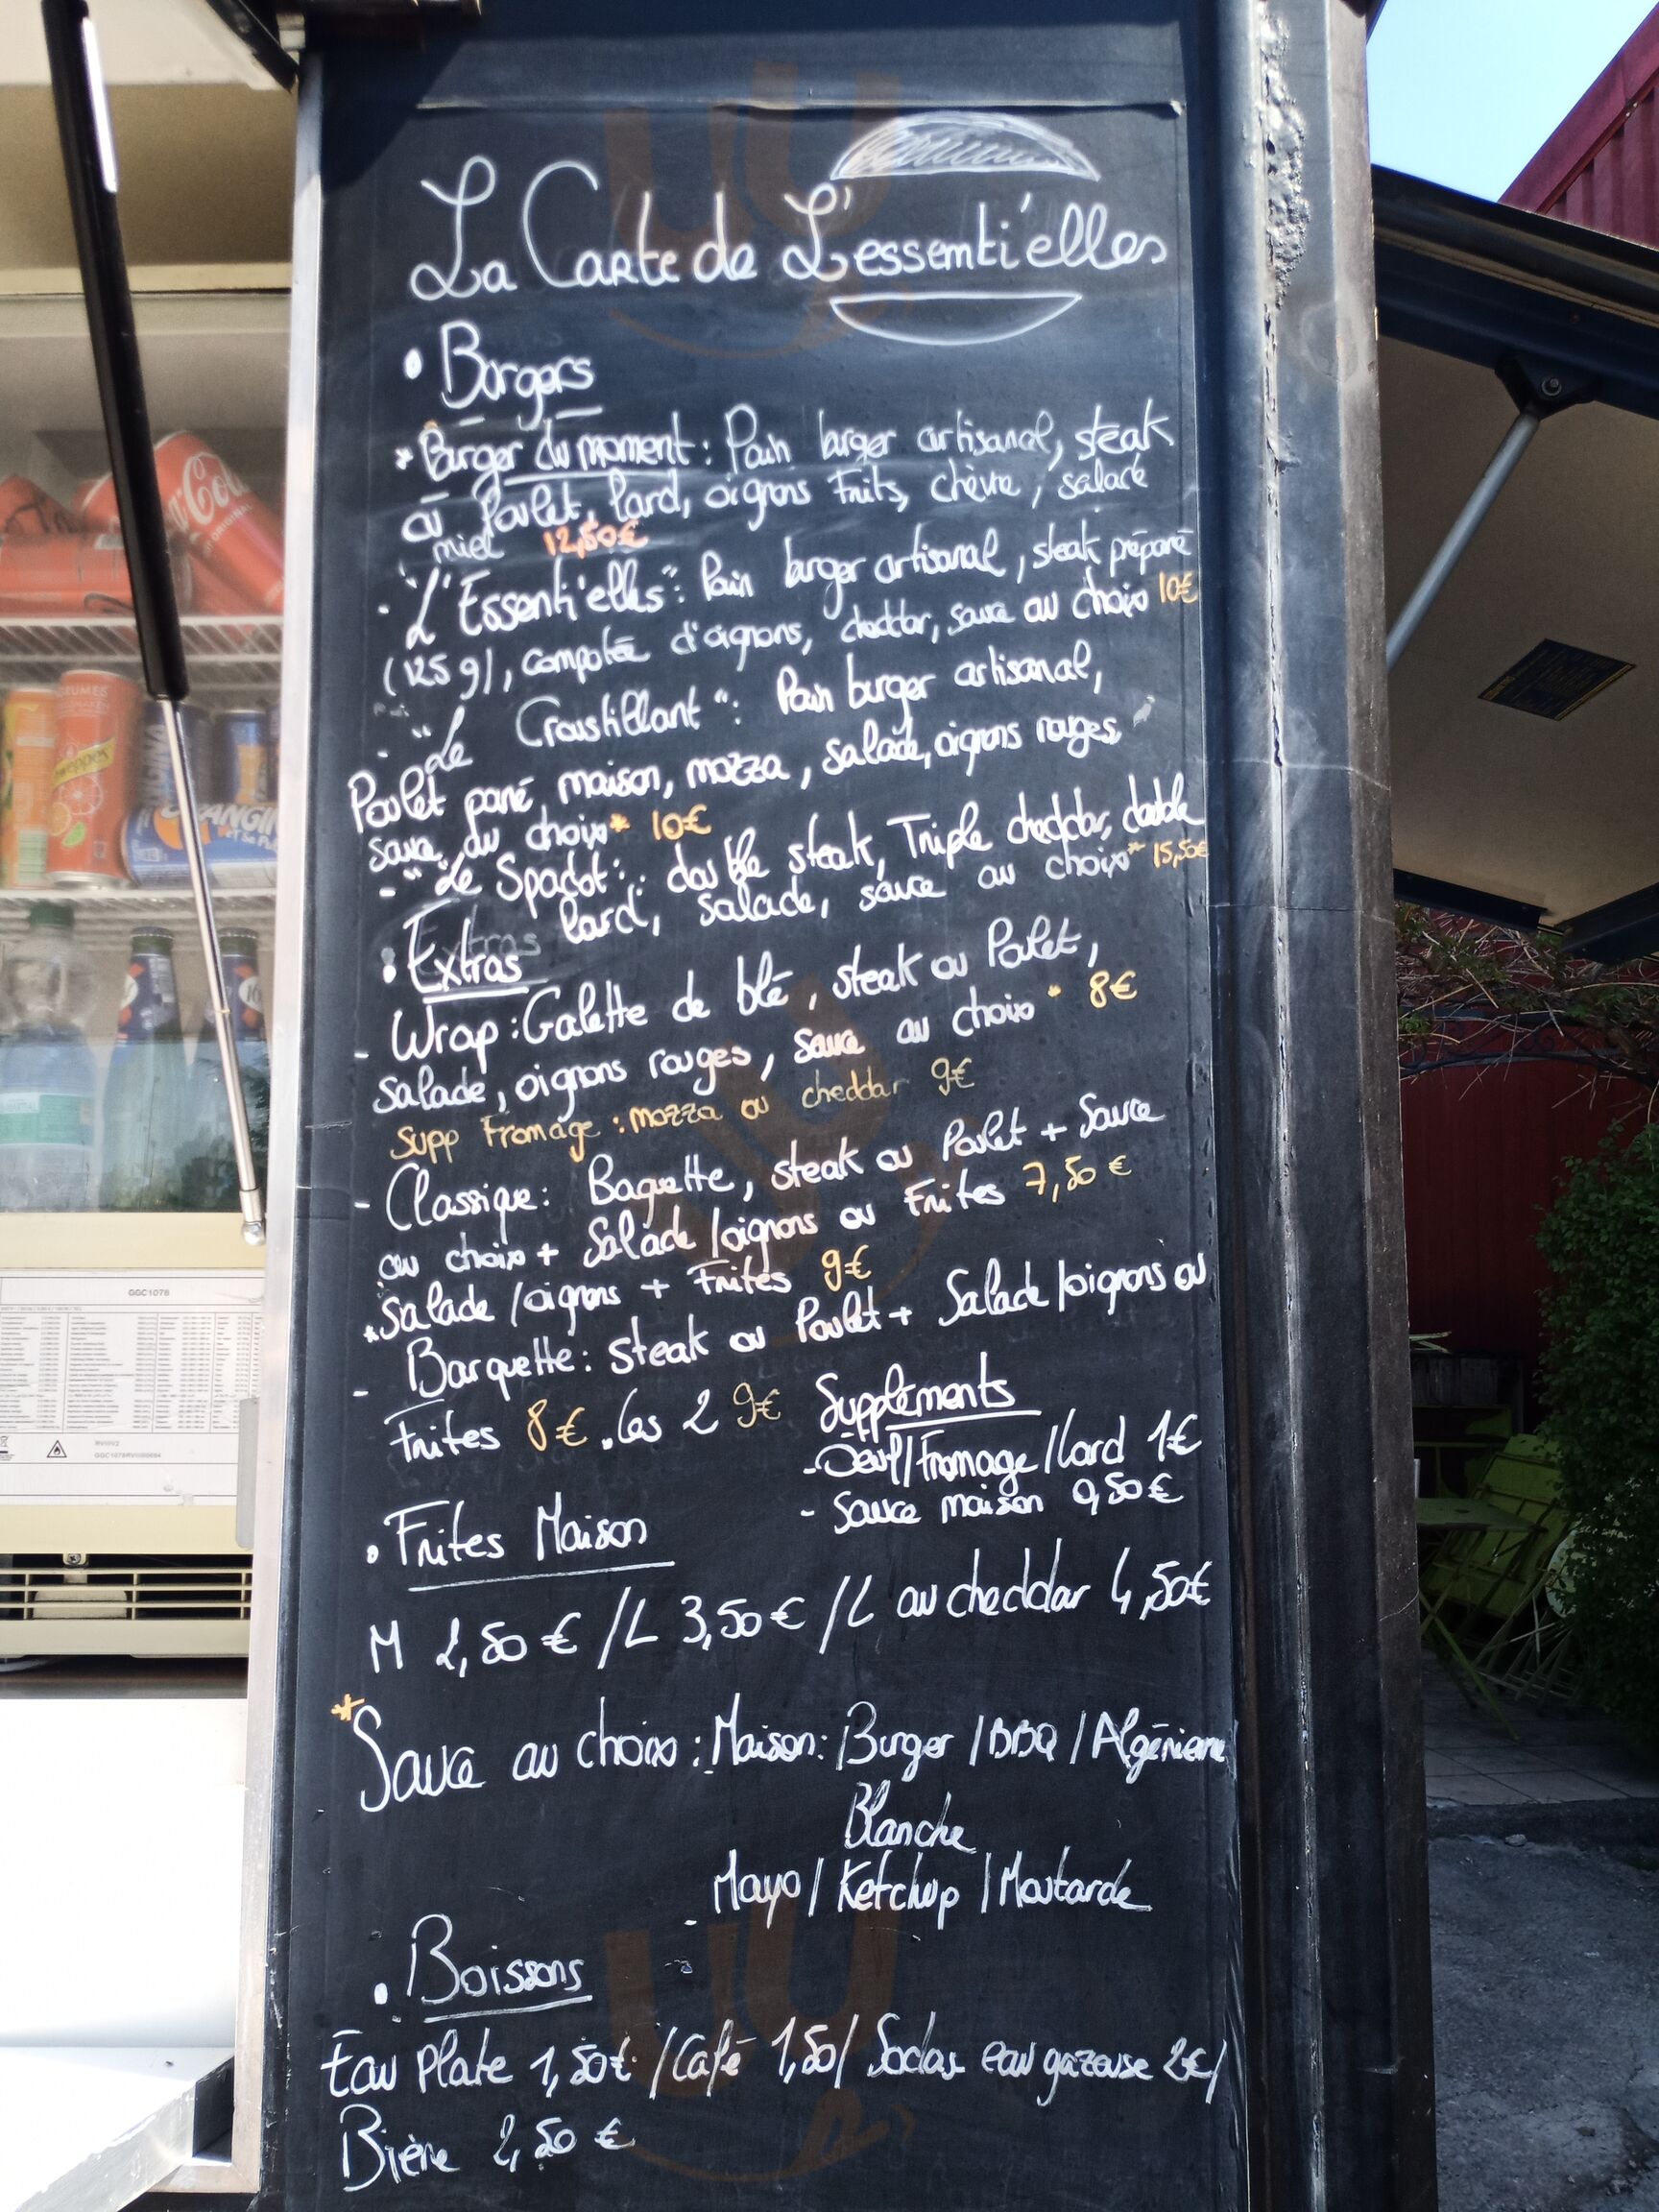 La Carte de L'essenti'elles
• Burgers
* Burger du moment : Pain burger artisanal, steak
ou Poulet, lard, oignons frits, chèvre, salade
miel 12,50€
- "L'Essenti'elles" : Pain burger artisanal, steak préparé
(125 g), compotée d'oignons, cheddar, sauce au choix 10€
- "Le Croustillant" : Pain burger artisanal,
Poulet pané maison, mozza, salade, oignons rouges,
sauce au choix* 10€
- "Le Spadot : double steak, Triple cheddar, double
lard, salade, sauce au choix* 15,50€
• Extras
- Wrap : Galette de blé, steak ou Poulet,
salade, oignons rouges, sauce au choix* 8€
Supp Fromage : mozza ou cheddar 9€
- Classique : Baguette, steak ou Poulet + Sauce
au choix + Salade/oignons ou Frites 7,50€
*Salade/oignons + Frites 9€
- Barquette : steak ou Poulet + Salade/oignons ou
Frites 8€. les 2 9€
Suppléments
- Oeuf/Fromage/Lard 1€
- Sauce maison 0,50€
• Frites Maison
M 2,50€ / L 3,50€ / L au cheddar 4,50€
*Sauce au choix : Maison : Burger / BBQ / Algérienne
Blanche
Mayo / Ketchup / Moutarde
• Boissons
Eau Plate 1,50€ / Café 1,50 / Sodas eau gazeuse 2€/
Bière 2,50€
Coca-Cola
Schweppes
ORANGINA
GGC1078